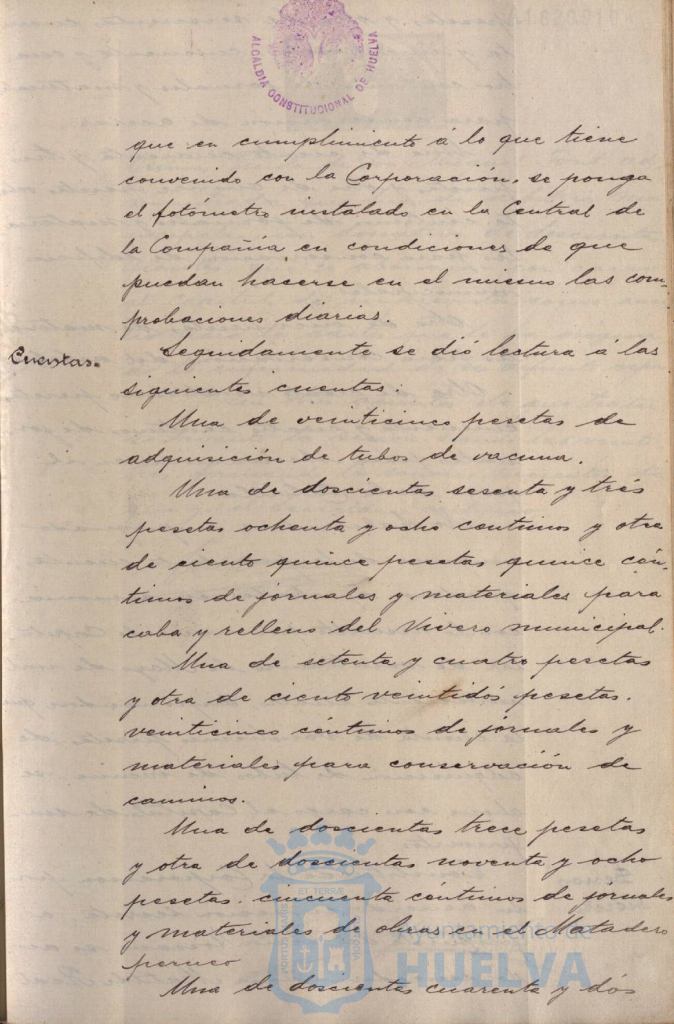 ALCALDIA CONSTITUCIONAL DE HUELVA
que en cumplimiento á lo que tiene
convenido con la Corporación, se ponga
el fotómetro instalado en la Central de
la Compañia en condiciones de que
puedan hacerse en el mismo las com-
probaciones diarias.
Cuentas.
Seguidamente se dió lectura á las
siguientes cuentas:
Una de veinticinco pesetas de
adquisición de tubos de vacuna.
Una de doscientas sesenta y trés
pesetas ochenta y ocho centimos y otra
de ciento quince pesetas quince cén-
timos de jornales y materiales para
caba y relleno del Vivero municipal.
Una de setenta y cuatro pesetas
y otra de ciento veintidós pesetas.
veinticinco céntimos de jornales y
materiales para conservación de
caminos.
Una de doscientas trece pesetas
y otra de doscientas noventa y ocho
pesetas. cincuenta céntimos de jornales
y materiales de obras en el Matadero
Una de doscientas cuarenta y dós
Ayuntamiento de
HUELVA